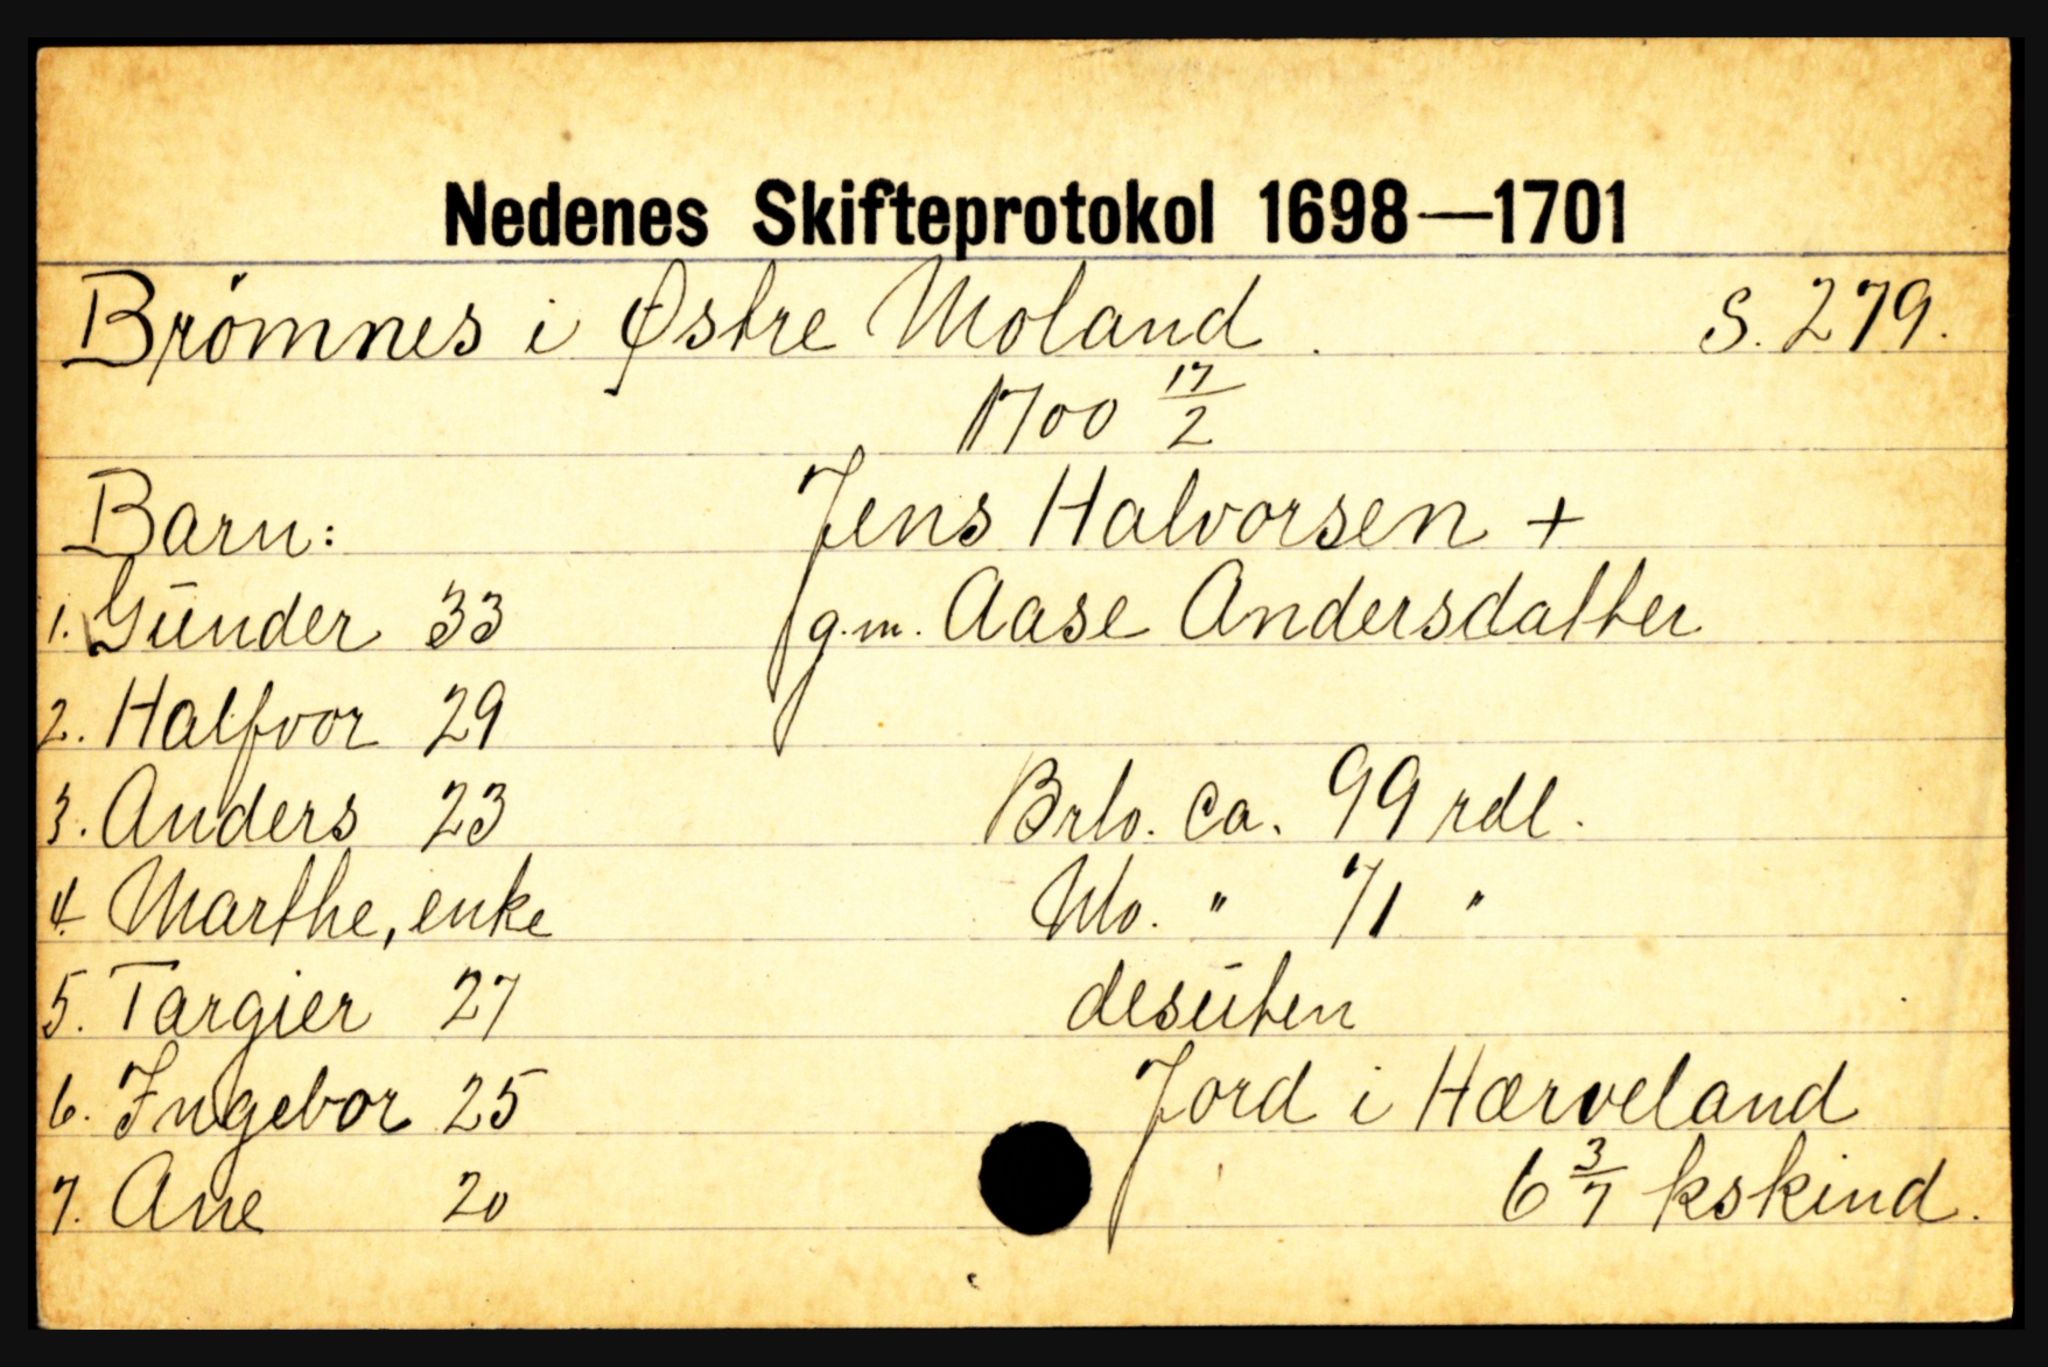 Nedenes Skifteprotokol 1698—1701
Brømnes i Østre Moland. S. 279.
1700 17/2
Barn: Jens Halvorsen +
1. Gunder 33 g.m. Aase Andersdatter
2. Halfvor 29
3. Anders 23 Brlo. Ca. 99 rdl.
4. Marthe, enke Nlo. " 71 "
5. Targier 27 desuten
6. Ingebor 25 Jord i Hærveland
7. Ane 20 6 3/7 kskind.